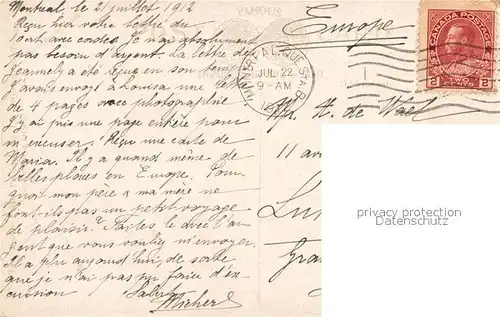 Montreal le 21 juillet 1912
Reçu hier votre lettre du
tout avec cartes. Je n'ai absolument
pas besoin d'argent. La lettre de
Jeannely a été reçue en son temps
J'avais envoyé à Louisa une lettre
de 4 pages avec photographie
J'y ai pris une page entière pour
m'excuser. Reçu une carte de
Maria. Il y a quand même de
belles places en Europe. Pour
quoi mon père & ma mère ne
font-ils pas un petit voyage
de plaisir. Faites le avec l'ar
gent que vous vouliez m'envoyer.
Il a plu aujourd'hui de sorte
que je n'ai pas pu faire d'ex
cursion
Salut
Europe
MONTREAL, QUE. STA. B
JUL 22
9-AM
CANADA POSTAGE
2 TWO CENTS 2
de Wael
11 av
privacy protection
Datenschutz